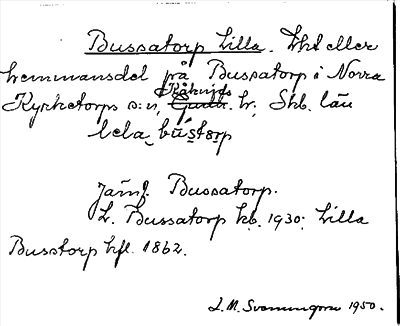 Bussatorp Lilla. Lht eller
hemmansdel på Bussatorp i Norra
Kåkinds
Kyrketorps s:n, Gudh. h; Skb. län
lela bústɷrp
Jämf. Bussatorp.
L. Bussatorp kb. 1930; Lilla
Busstorp hfl. 1862.
L. M. Svenningson 1950.